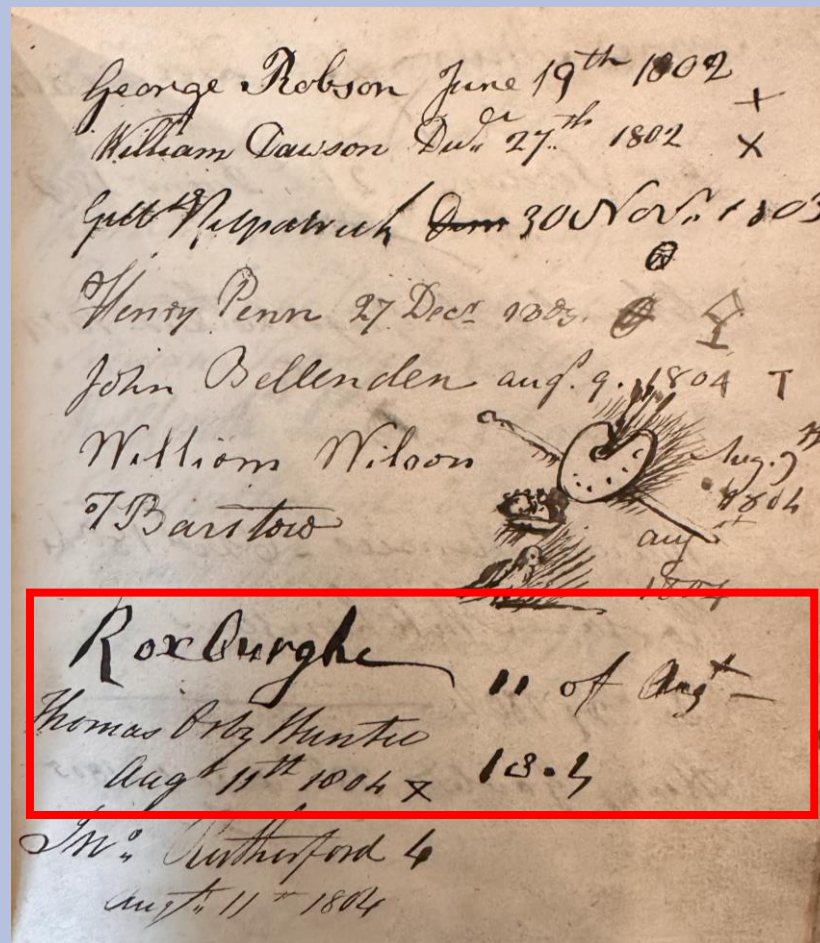 George Robson June 19th 1802 +
William Dawson 27th 1802 X
Kilpatrick 30 Nov. 1803
Henry Penn 27 Decr 1803.
John Bellenden augt. 9. 1804 T
William Wilson Aug. 9th 1804
T Barstow augst 1804
Roxburghe 11 of Augt
1804
Thomas Orby Hunter
Augt 11th 1804 X
Jno. Rutherford 4
Augt. 11th 1804